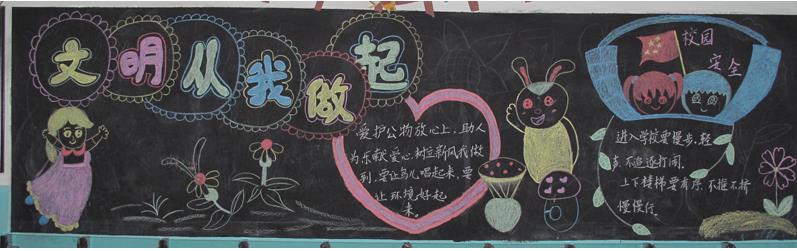 文明从我做起
爱护公物放心上,助人
为乐献爱心,树立新风我做
到,要让鸟儿唱起来,要
让环境好起
来。
校园
安全
进入学校要慢步,轻
声,不追逐打闹,
上下楼梯要有序,不推不挤
慢慢行。